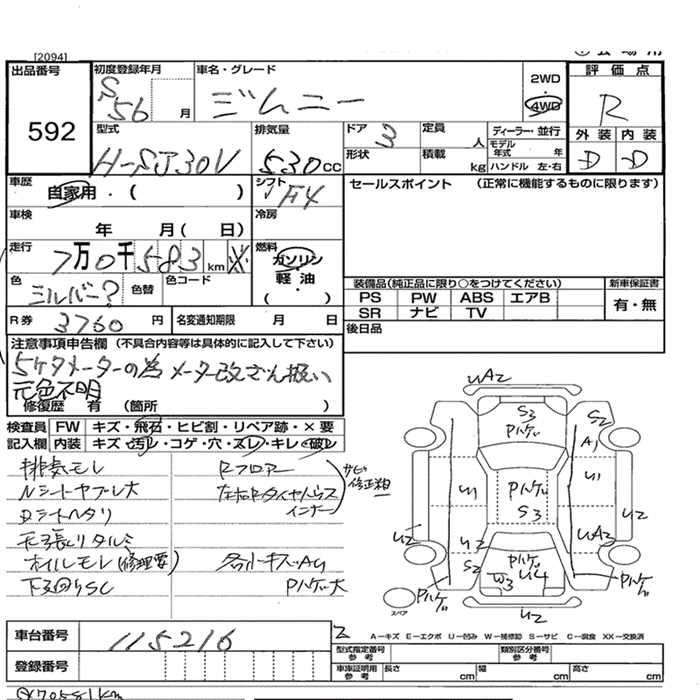 [2094]
出品番号
592
初度登録年月
S56 月
車名・グレード
ジムニー
2WD
4WD
評価点
R
外装 内装
D D
型式
H-SJ30V
排気量
530cc
ドア 3
定員 人
形状
積載 kg
ディーラー・並行
モデル年式 年
ハンドル 左・右
車歴
自家用・( )
シフト
F4
セールスポイント (正常に機能するものに限ります)
車検
年 月( 日)
冷房
走行
7万0千583km ※
燃料
ガソリン
軽油
( )
色
シルバー?
色替
色コード
装備品(純正品に限り○をつけてください)
PS PW ABS エアB
SR ナビ TV
新車保証書
有・無
R券 3760円
名変通知期限 月 日
後日品
注意事項申告欄 (不具合内容等は具体的に記入して下さい)
5ケタメーターの為メーター改ざん扱い
元色不明
修復歴 有 (箇所 )
検査員記入欄
FW キズ・飛石・ヒビ割・リペア跡・×要
内装 キズ・汚レ・コゲ・穴・スレ・キレ・破レ
排気モレ
Nシートヤブレ大
Dシートヘタリ
天張リタルミ
オイルモレ(修理要)
下廻りSC
Rフロアー
左右Rタイヤハウス
インナー
サビ
修正粗
各所キズ・AU
Pハゲ大
UA2
S3
Pハゲ
S2
A1
U1
U1
Pハゲ
S3
U2
U2
UA3
U2
S2
Pハゲ
W3 U4
Pハゲ
Pハゲ
U2
スペア
A―キズ E―エクボ U―凹み W―補修跡 S―サビ C―腐食 XX―交換済
車台番号
115216
登録番号
型式指定番号
参考
類別区分番号
参考
車庫証明用
参考
長さ cm
幅 cm
高さ cm